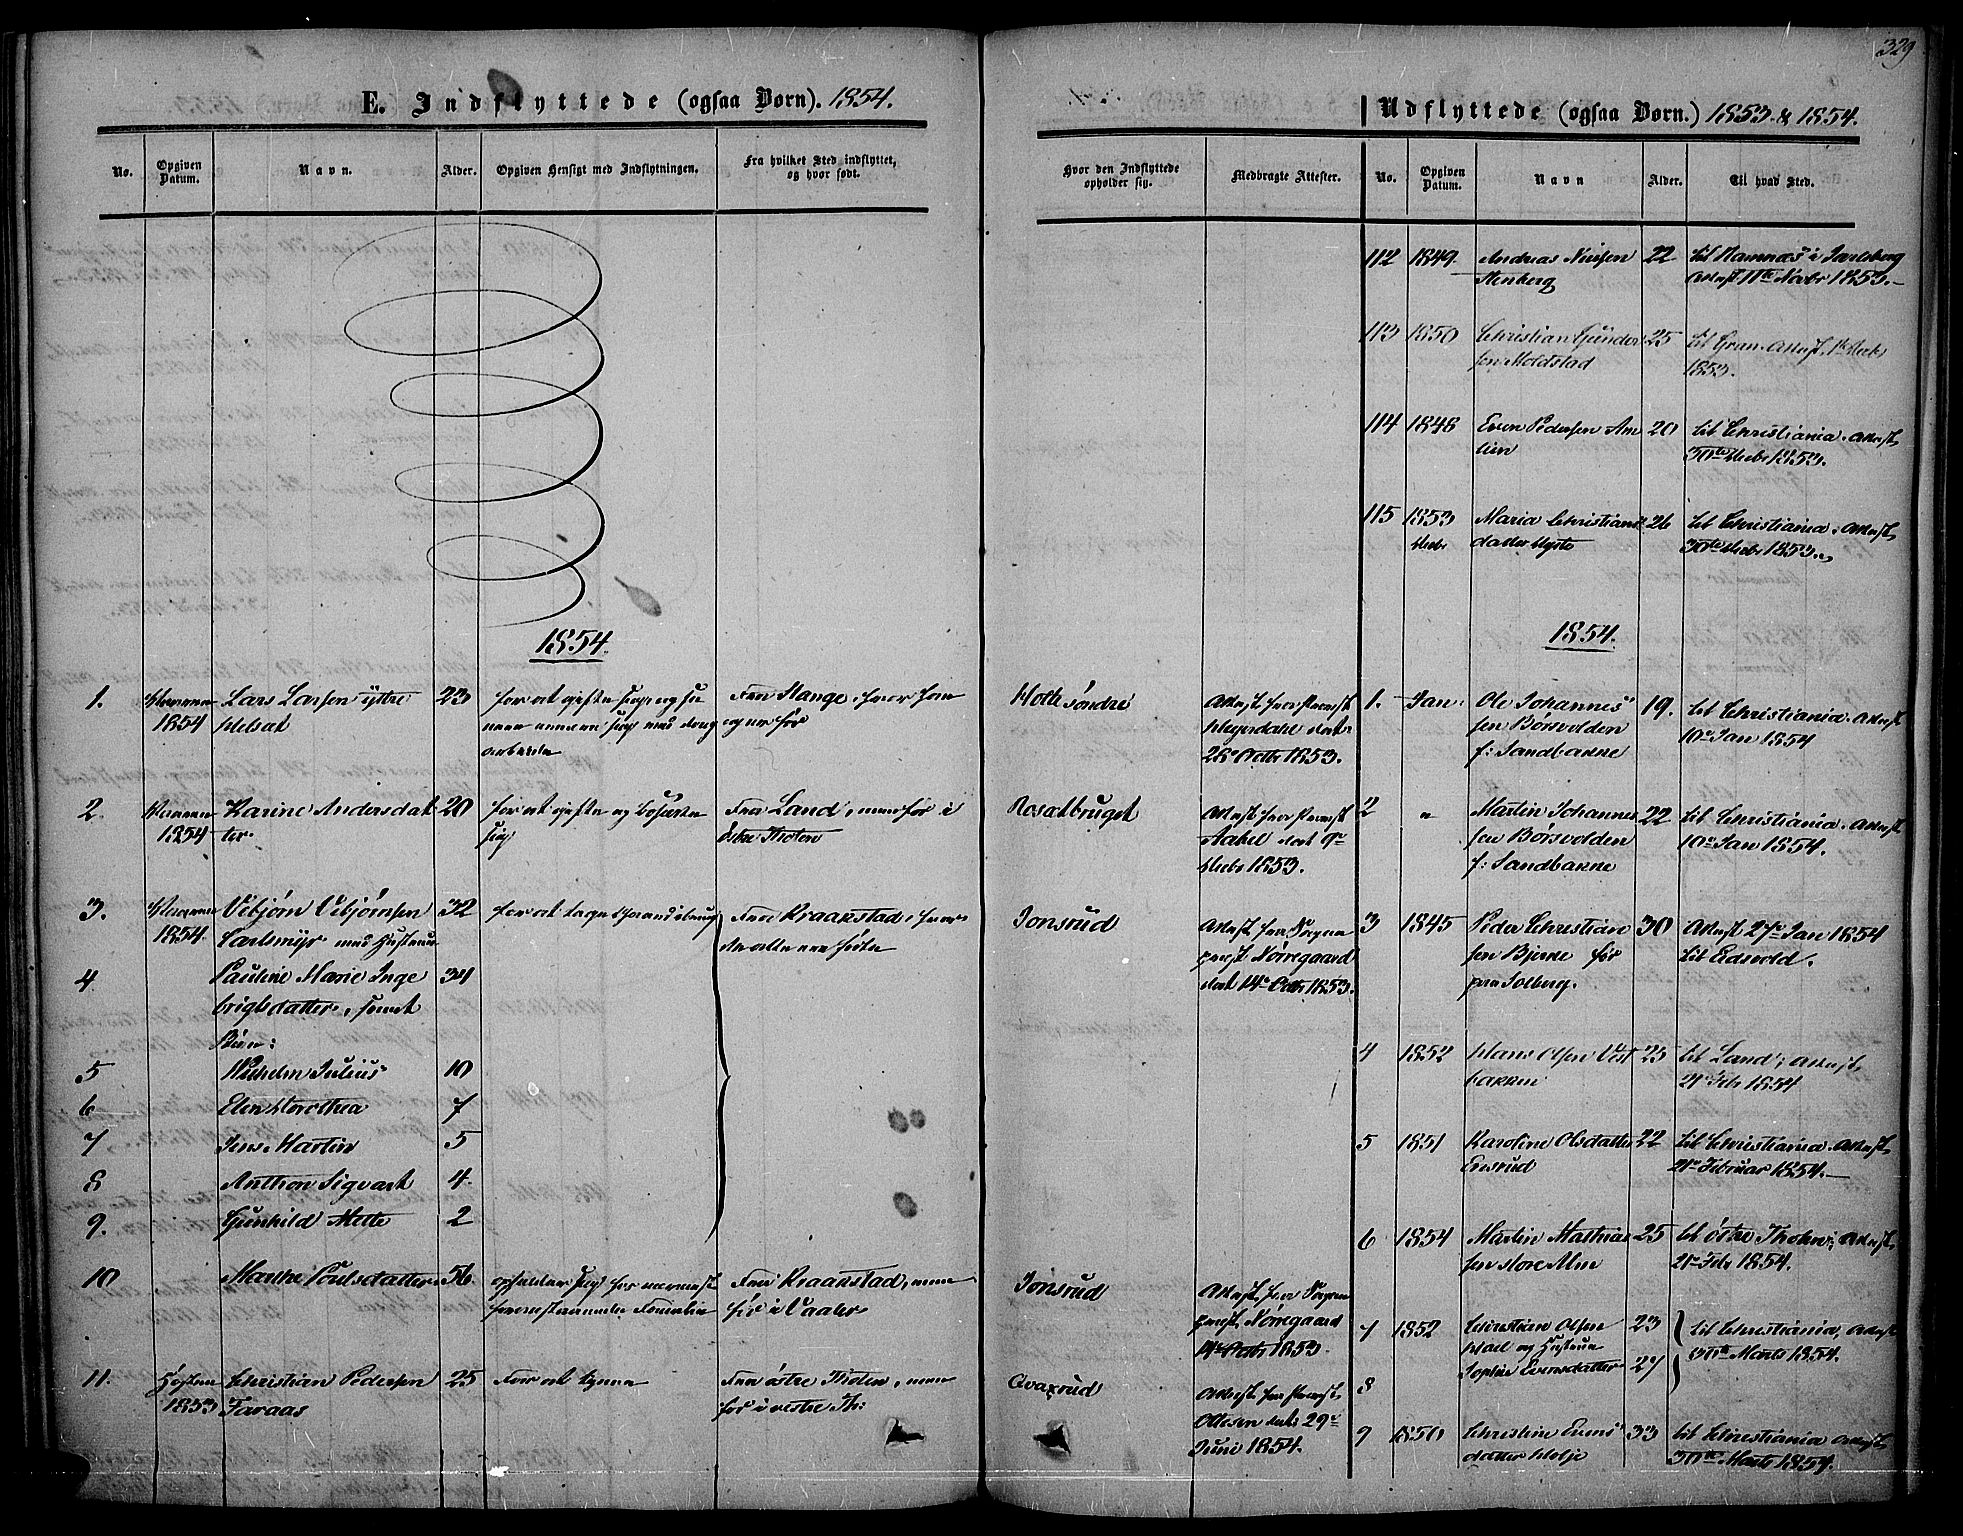 329
E. Indflyttede (ogsaa Børn). 1854.
No.
Opgiven Datum.
Navn.
Alder.
Opgiven Hensigt med Indflytningen.
Fra hvilket Sted indflyttet,
og hvor født.
1854.
1.
1854
Lars Larsen ytre
23
for at gifte sig og
Fra Stange, hvor han
og er før
2.
1854
Karine Andersdat
ter
20
for at gifte og bosætte
sig
Fra Land, men før i
Østre Thoten
3.
1854.
Vebjørn Vebjørnsen
Carlsmyr med Hustrue
32
Fra Kraakstad, hvor
de alle ere fødte
4
Pauline Marie Inge
brigtsdatter, samt
Børn:
34
5
Wilhelm Julius
10
6
Elen Dorothea
7
7
Jens Martin
5
8
Anthon Sigvart
4.
9.
Gunhild Mette
2
10
Marthe Poulsdatter
56
Fra Kraakstad, men
før i Vaaler
11.
Høsten
1853
Christian Pedersen
Faraas
25
For at tjene
Fra østre Thoten, men
før i vestre Th:
Udflyttede (ogsaa Børn.) 1853 & 1854.
Hvor den Indflyttede
opholder sig.
Medbragte Attester.
No.
Opgiven Datum.
Navn
Alder.
Til hvad Sted.
112
1849.
Andreas Nielsen
Stenberg
22
til Ramnæs i Jarlsberg
Attest 11te Novbr 1853.
113
1850
Christian Gunder
sen Moldstad
25
til Gran. Attest 1te Decbr
1853.
114
1848
Even Pedersen Am
lien
20
til Christiania. Attest
30te Decbr 1853.
115
1853
Decbr
Maria Christians
datter Dyste
26
til Christiania. Attest
30te Decbr 1853.
1854.
Holte søndre
Attest fra Præst
Heyerdahl dat:
28e Octbr 1853.
1.
Jan.
Ole Johannes
sen Børsvolden
f: Sandbakke
19.
til Christiania. Attest
10e Jan 1854
Rosaltbruget
Attest fra Præst
Aabel dat 9e
Decbr 1853.
2
"
Martin Johannes
sen Børsvolden
f: Sandbakke
22
til Christiania. Attest
10e Jan 1854.
Jonsrud
Attest fra Sogne
præst Nørregaard
dat 14e Octbr 1853.
3
1845
Peder Christian
sen Bjerke før
paa Solberg.
30
Attest 27e Jan 1854
til Eidsvold.
4
1852
Hans Olsen Vest
bakken
25
til Land, Attest
21e Feb 1854
5
1851
Karoline Olsdatter
Ensrud
22
til Christiania. Attest
21e Februar 1854.
6
1854
Martin Mathias
sen store Alm
25
til østre Thoten, Attest
21e Feb 1854.
Jonsrud
Attest fra Sogne
præst Nørregaard
14e Octbr 1853
7
1852
Christian Olsen
og Hustrue
23
til Christiania, Attest
30te Marts 1854.
8
Sophie Evensdatter
27
Qvaxrud
Attest fra Præst
Ottesen dat: 29e
Juni 1854.
9
1850
Christine Evens
datter Hole
33
til Christiania Attest
30te Marts 1854.